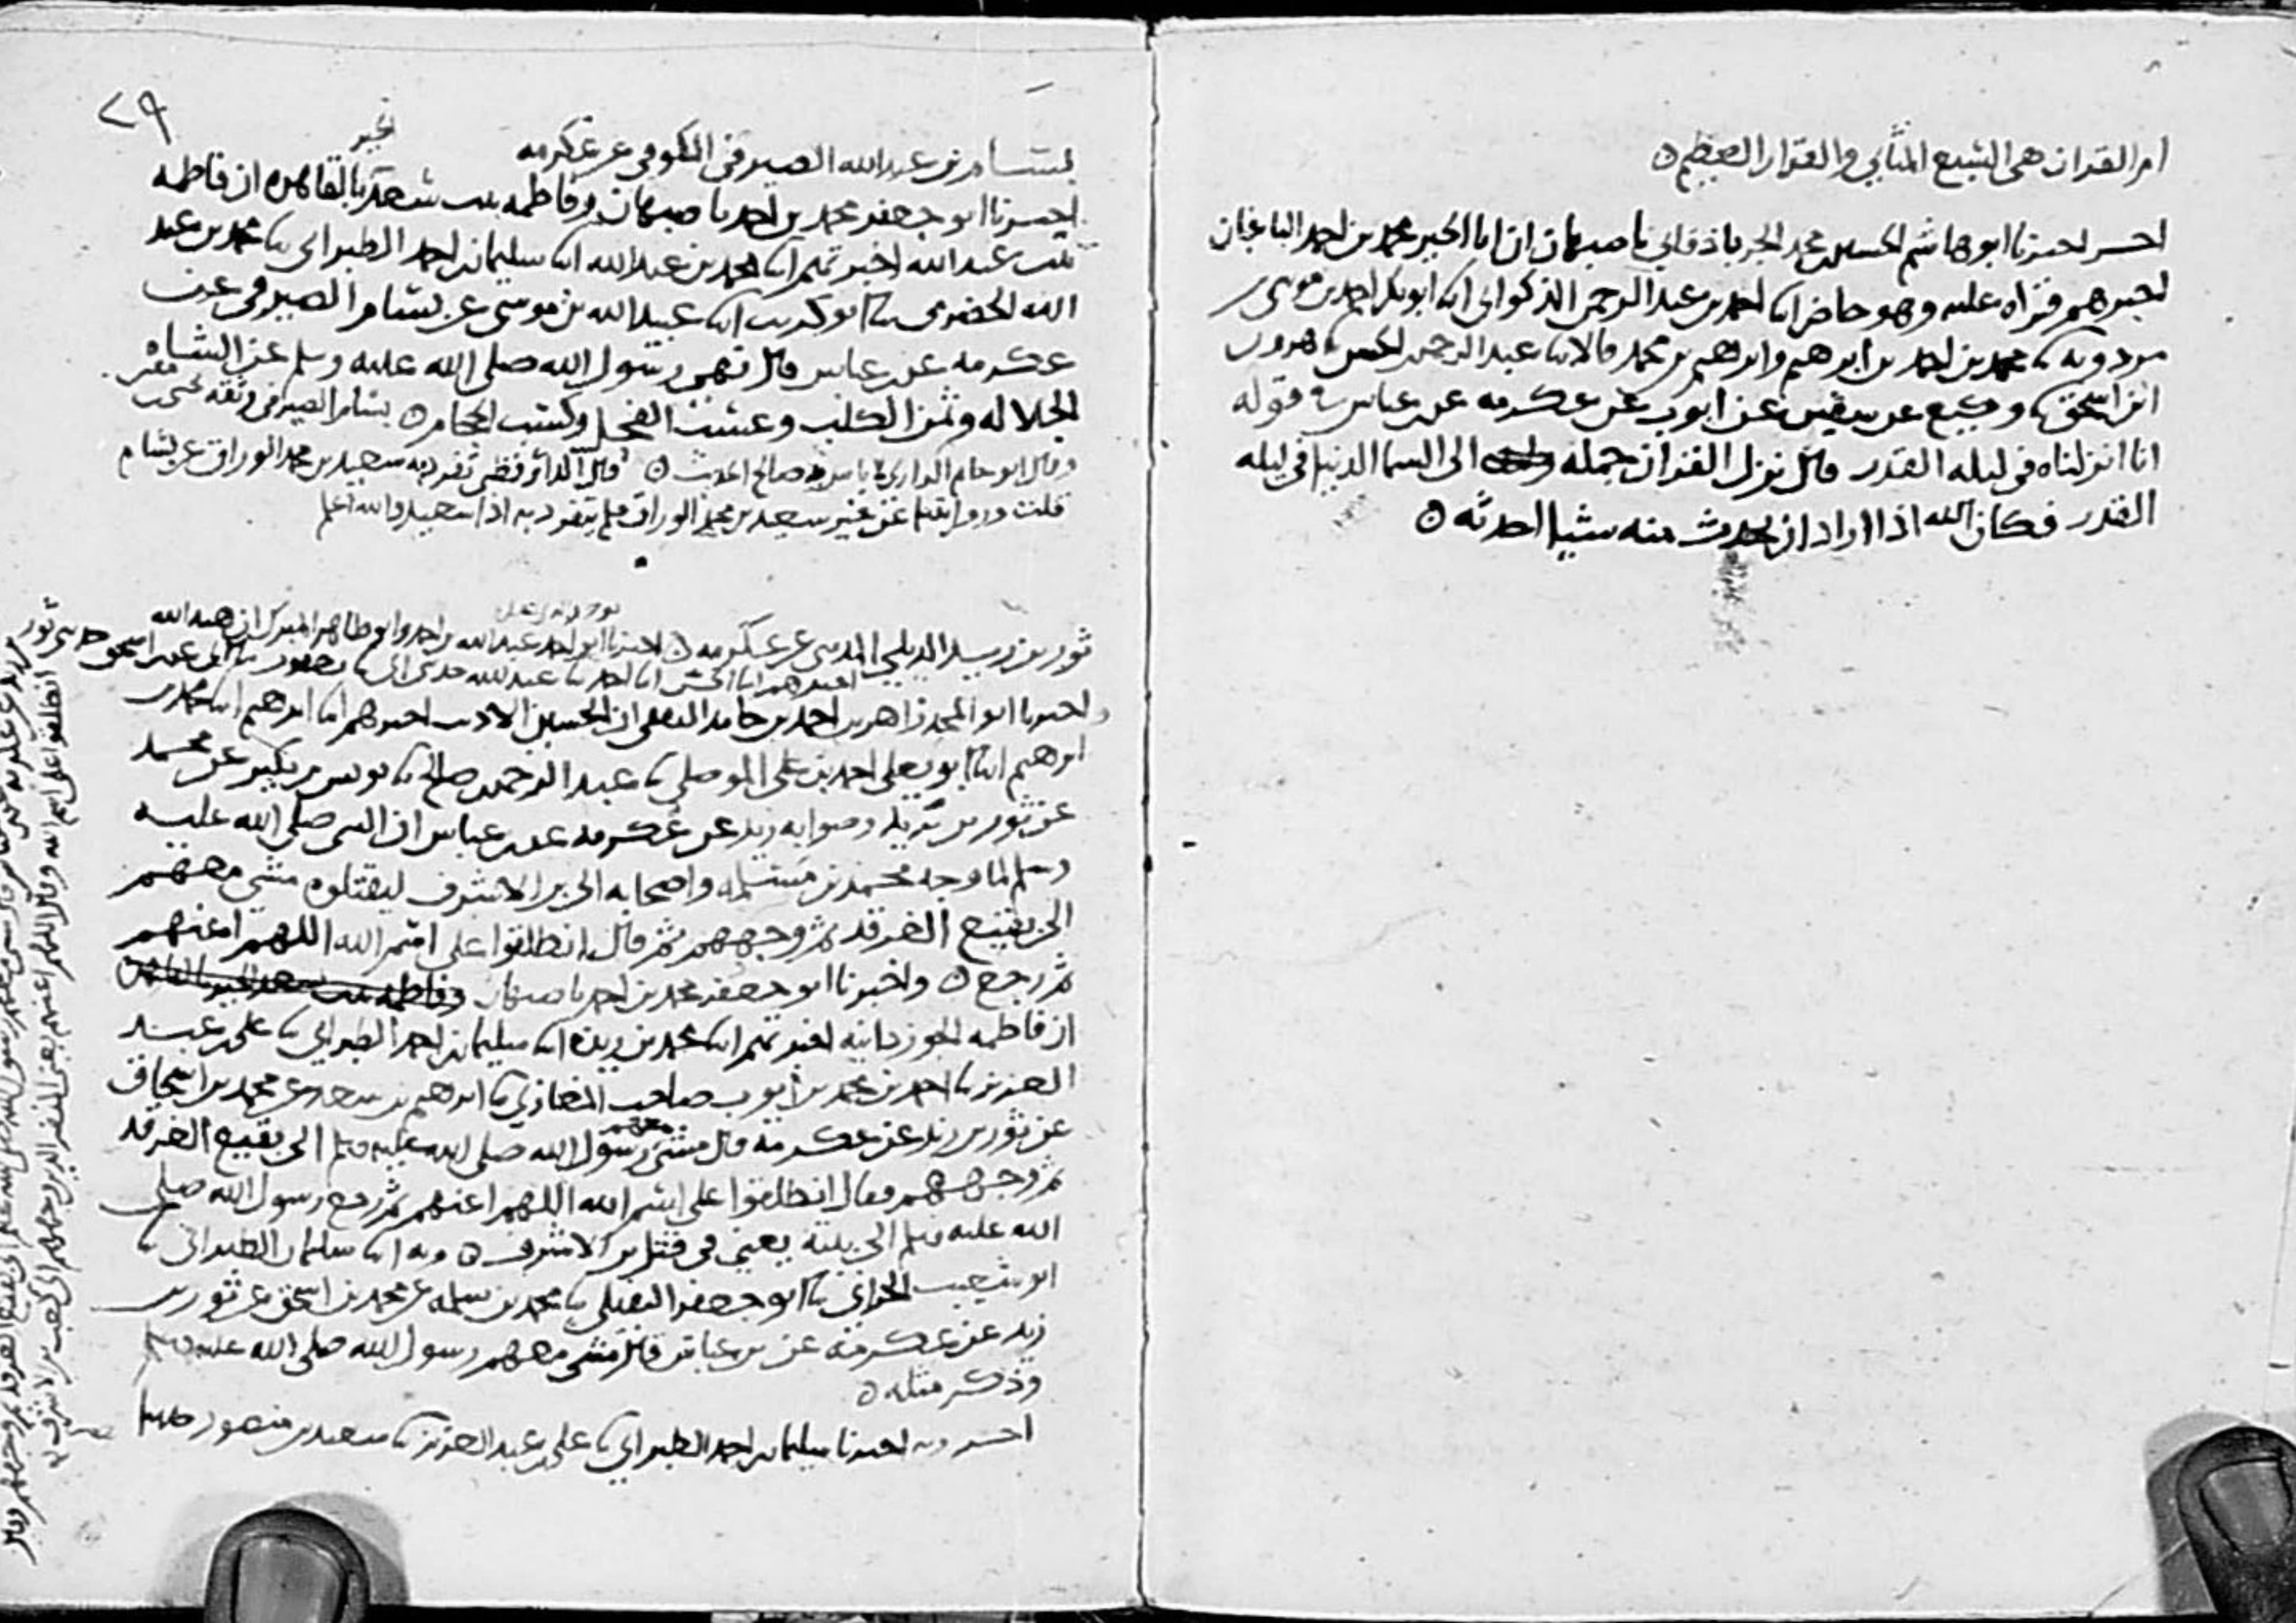 ام القران هي السبع المثاني والقران العظيم ه
اخبرنا ابو هاشم الحسين محمد الجرباذقاني باصبهان ان ابا الخير محمد بن احمد الباغبان
اخبرهم قراه عليه وهو حاضر ابنا احمد بن عبد الرحمن الذكواني ابنا ابو بكر احمد بن موسى بن
مردويه ثنا محمد بن احمد بن ابرهيم وابرهيم بن محمد قالا ثنا عبد الرحمن بن الحسن ثنا هرون
ابن اسحق ثنا وكيع عن سفين عن ايوب عن عكرمه عن بن عباس في قوله
انا انزلناه في ليله القدر قال نزل القران جمله الى السما الدنيا في ليله
القدر فكان الله اذا اراد ان يحدث منه شيا احدثه ه
٢٩
بسام بن عبد الله الصيرفي الكوفي عن عكرمه
اخبرنا ابو جعفر محمد بن احمد باصبهان وفاطمه بنت سعد الخير بالقاهره ان فاطمه
بنت عبد الله اخبرتهم ابنا محمد بن عبد الله ابنا سليمان بن احمد الطبراني ثنا محمد بن عبد
الله الحضرمي ثنا ابو كريب ابنا عبيد الله بن موسى عن بسام الصيرفي عن
عكرمه عن بن عباس قال نهى رسول الله صلى الله عليه وسلم عن الشاه
الجلاله وثمن الكلب وعسب الفحل وكسب الحجام ه بسام الصيرفي وثقه يحيى بن معين
وقال ابو حاتم الرازي لا باس به صالح الحديث ه قال الدارقطني تفرد به سعيد بن محمد الوراق عن بسام
قلت وروايتنا عن غير سعيد بن محمد الوراق فلم يتفرد به اذا سعيد والله اعلم
ثور بن زيد الديلي المدني عن عكرمه ه اخبرنا ابو احمد عبد الله بن احمد وابو طاهر المبرك ان هبه الله
اخبرهم ابنا الحسن ابنا احمد ثنا عبد الله حدثني ابي ثنا يعقوب ثنا ابي عن بن اسحق حدثني ثور
واخبرنا ابو المجد زاهر بن احمد بن حامد الثقفي ان الحسين الاديب اخبرهم ابنا ابرهيم ابنا محمد بن
ابرهيم ابنا ابو يعلى احمد بن علي الموصلي ثنا عبد الرحمن بن صالح ثنا يونس بن بكير عن محمد
عن ثور بن يزيد وصوابه زيد عن عكرمه عن بن عباس ان النبي صلى الله عليه
وسلم لما وجه محمد بن مسلمه واصحابه الى بن الاشرف ليقتلوه مشى معهم
الى بقيع الغرقد ثم وجههم ثم قال انطلقوا على اسم الله اللهم اعنهم
ثم رجع ه واخبرنا ابو جعفر محمد بن احمد باصبهان وفاطمه بنت سعد الخير بالقاهره
ان فاطمه الجوزدانيه اخبرتهم ابنا محمد بن ريذه ابنا سليمان بن احمد الطبراني ثنا علي بن عبد
العزيز ثنا احمد بن محمد بن ايوب صاحب المغازي ثنا ابرهيم بن سعد عن محمد بن اسحاق
عن ثور بن زيد عن عكرمه قال مشى معهم رسول الله صلى الله عليه وسلم الى بقيع الغرقد
ثم وجههم فقال انطلقوا على اسم الله اللهم اعنهم ثم رجع رسول الله صلى
الله عليه وسلم الى بيته يعني في قتل بن الاشرف ه وبه ابنا سليمان الطبراني ثنا
ابو شعيب الحراني ثنا ابو جعفر النفيلي ثنا محمد بن سلمه عن محمد بن اسحق عن ثور بن
زيد عن عكرمه عن بن عباس قال مشى معهم رسول الله صلى الله عليه وسلم
وذكر مثله ه
وبه اخبرنا سليمان بن احمد الطبراني ثنا علي بن عبد العزيز ثنا سعيد بن منصور
بن زيد عن عكرمه عن بن عباس قال مشى معهم رسول الله صلى الله عليه وسلم الى بقيع الغرقد ثم وجههم وقال
انطلقوا على اسم الله وقال اللهم اعنهم يعني النفر الذين وجههم الى كعب بن الاشرف ه